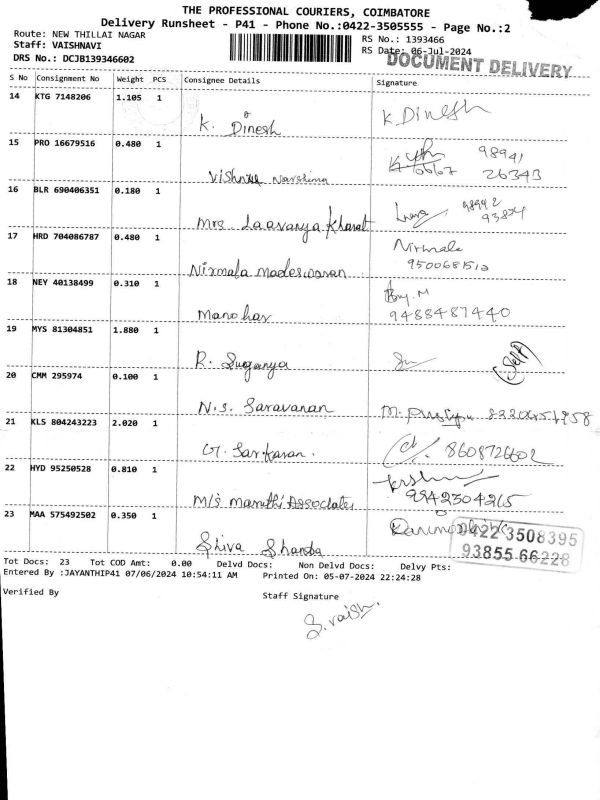 THE PROFESSIONAL COURIERS, COIMBATORE
Delivery Runsheet - P41 - Phone No.:0422-3505555 - Page No.:2
Route: NEW THILLAI NAGAR
Staff: VAISHNAVI
DRS No.: DCJB139346602
RS No.: 1393466
RS Date: 06-Jul-2024
DOCUMENT DELIVERY
S No Consignment No Weight PCS Consignee Details Signature
14 KTG 7148206 1.105 1
K. Dinesh K Dinesh
15 PRO 16679516 0.480 1
Vishnu Narshima 98941
26343
16 BLR 690406351 0.180 1
Mrs Laavanya Kharat 98942
17 HRD 704086787 0.480 1
Nirmala madeswaran Nirmala
9500681512
18 NEY 40138499 0.310 1
Manohar 9488487440
19 MYS 81304851 1.880 1
R. Suganya (Self)
20 CMM 295974 0.100 1
N.S. Saravanan
21 KLS 804243223 2.020 1
G. Sankaran. 8608726602
22 HYD 95250528 0.810 1
M/s maruthi Associates 9942304265
23 MAA 575492502 0.350 1
Shiva Shanba
0422 3508395
93855 66228
Tot Docs: 23 Tot COD Amt: 0.00 Delvd Docs: Non Delvd Docs: Delvy Pts:
Entered By :JAYANTHIP41 07/06/2024 10:54:11 AM Printed On: 05-07-2024 22:24:28
Verified By Staff Signature
S. vaish.